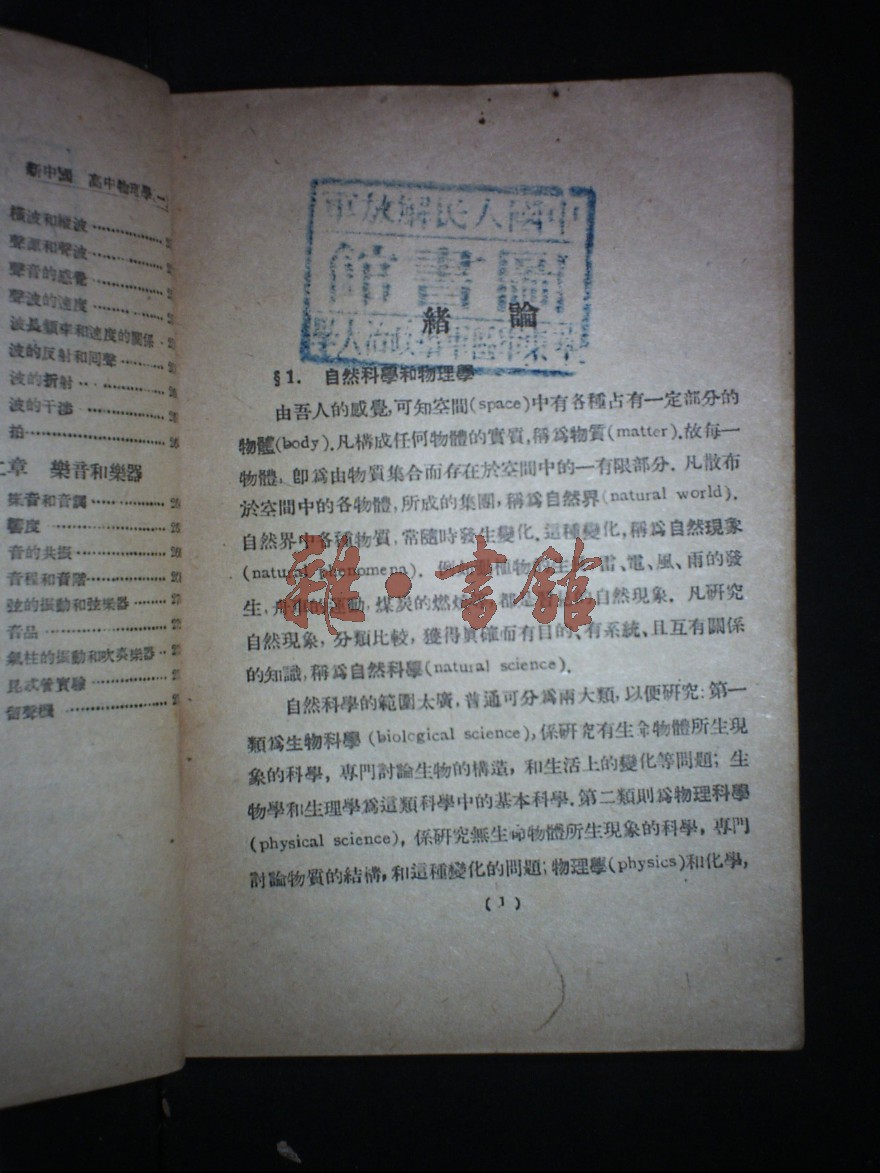 新中國 高中物理學
橫波和縱波
聲源和聲波
聲音的感覺
聲波的速度
波長頻率和速度的關係
波的反射和回聲
波的折射
波的干涉
拍
二章 樂音和樂器
樂音和音調
響度
音的共振
音程和音階
弦的振動和弦樂器
音品
氣柱的振動和吹奏樂器
昆忒管實驗
留聲機
中國人民解放軍
圖書館
緒論
§1. 自然科學和物理學
由吾人的感覺,可知空間(space)中有各種占有一定部分的
物體(body).凡構成任何物體的實質,稱爲物質(matter).故每一
物體,卽爲由物質集合而存在於空間中的一有限部分.凡散布
於空間中的各物體,所成的集團,稱爲自然界(natural world).
自然界中各種物質,常隨時發生變化.這種變化,稱爲自然現象
(natural phenomena).例如動植物的生長,雷、電、風、雨的發
生,舟車的運動,煤炭的燃燒等,都是普通的自然現象.凡研究
自然現象,分類比較,獲得眞確而有目的、有系統、且互有關係
的知識,稱爲自然科學(natural science).
自然科學的範圍太廣,普通可分爲兩大類,以便研究:第一
類爲生物科學(biological science),係研究有生命物體所生現
象的科學,專門討論生物的構造,和生活上的變化等問題;生
物學和生理學爲這類科學中的基本科學.第二類則爲物理科學
(physical science),係研究無生命物體所生現象的科學,專門
討論物質的結構,和這種變化的問題;物理學(physics)和化學,
(1)
雜·書館